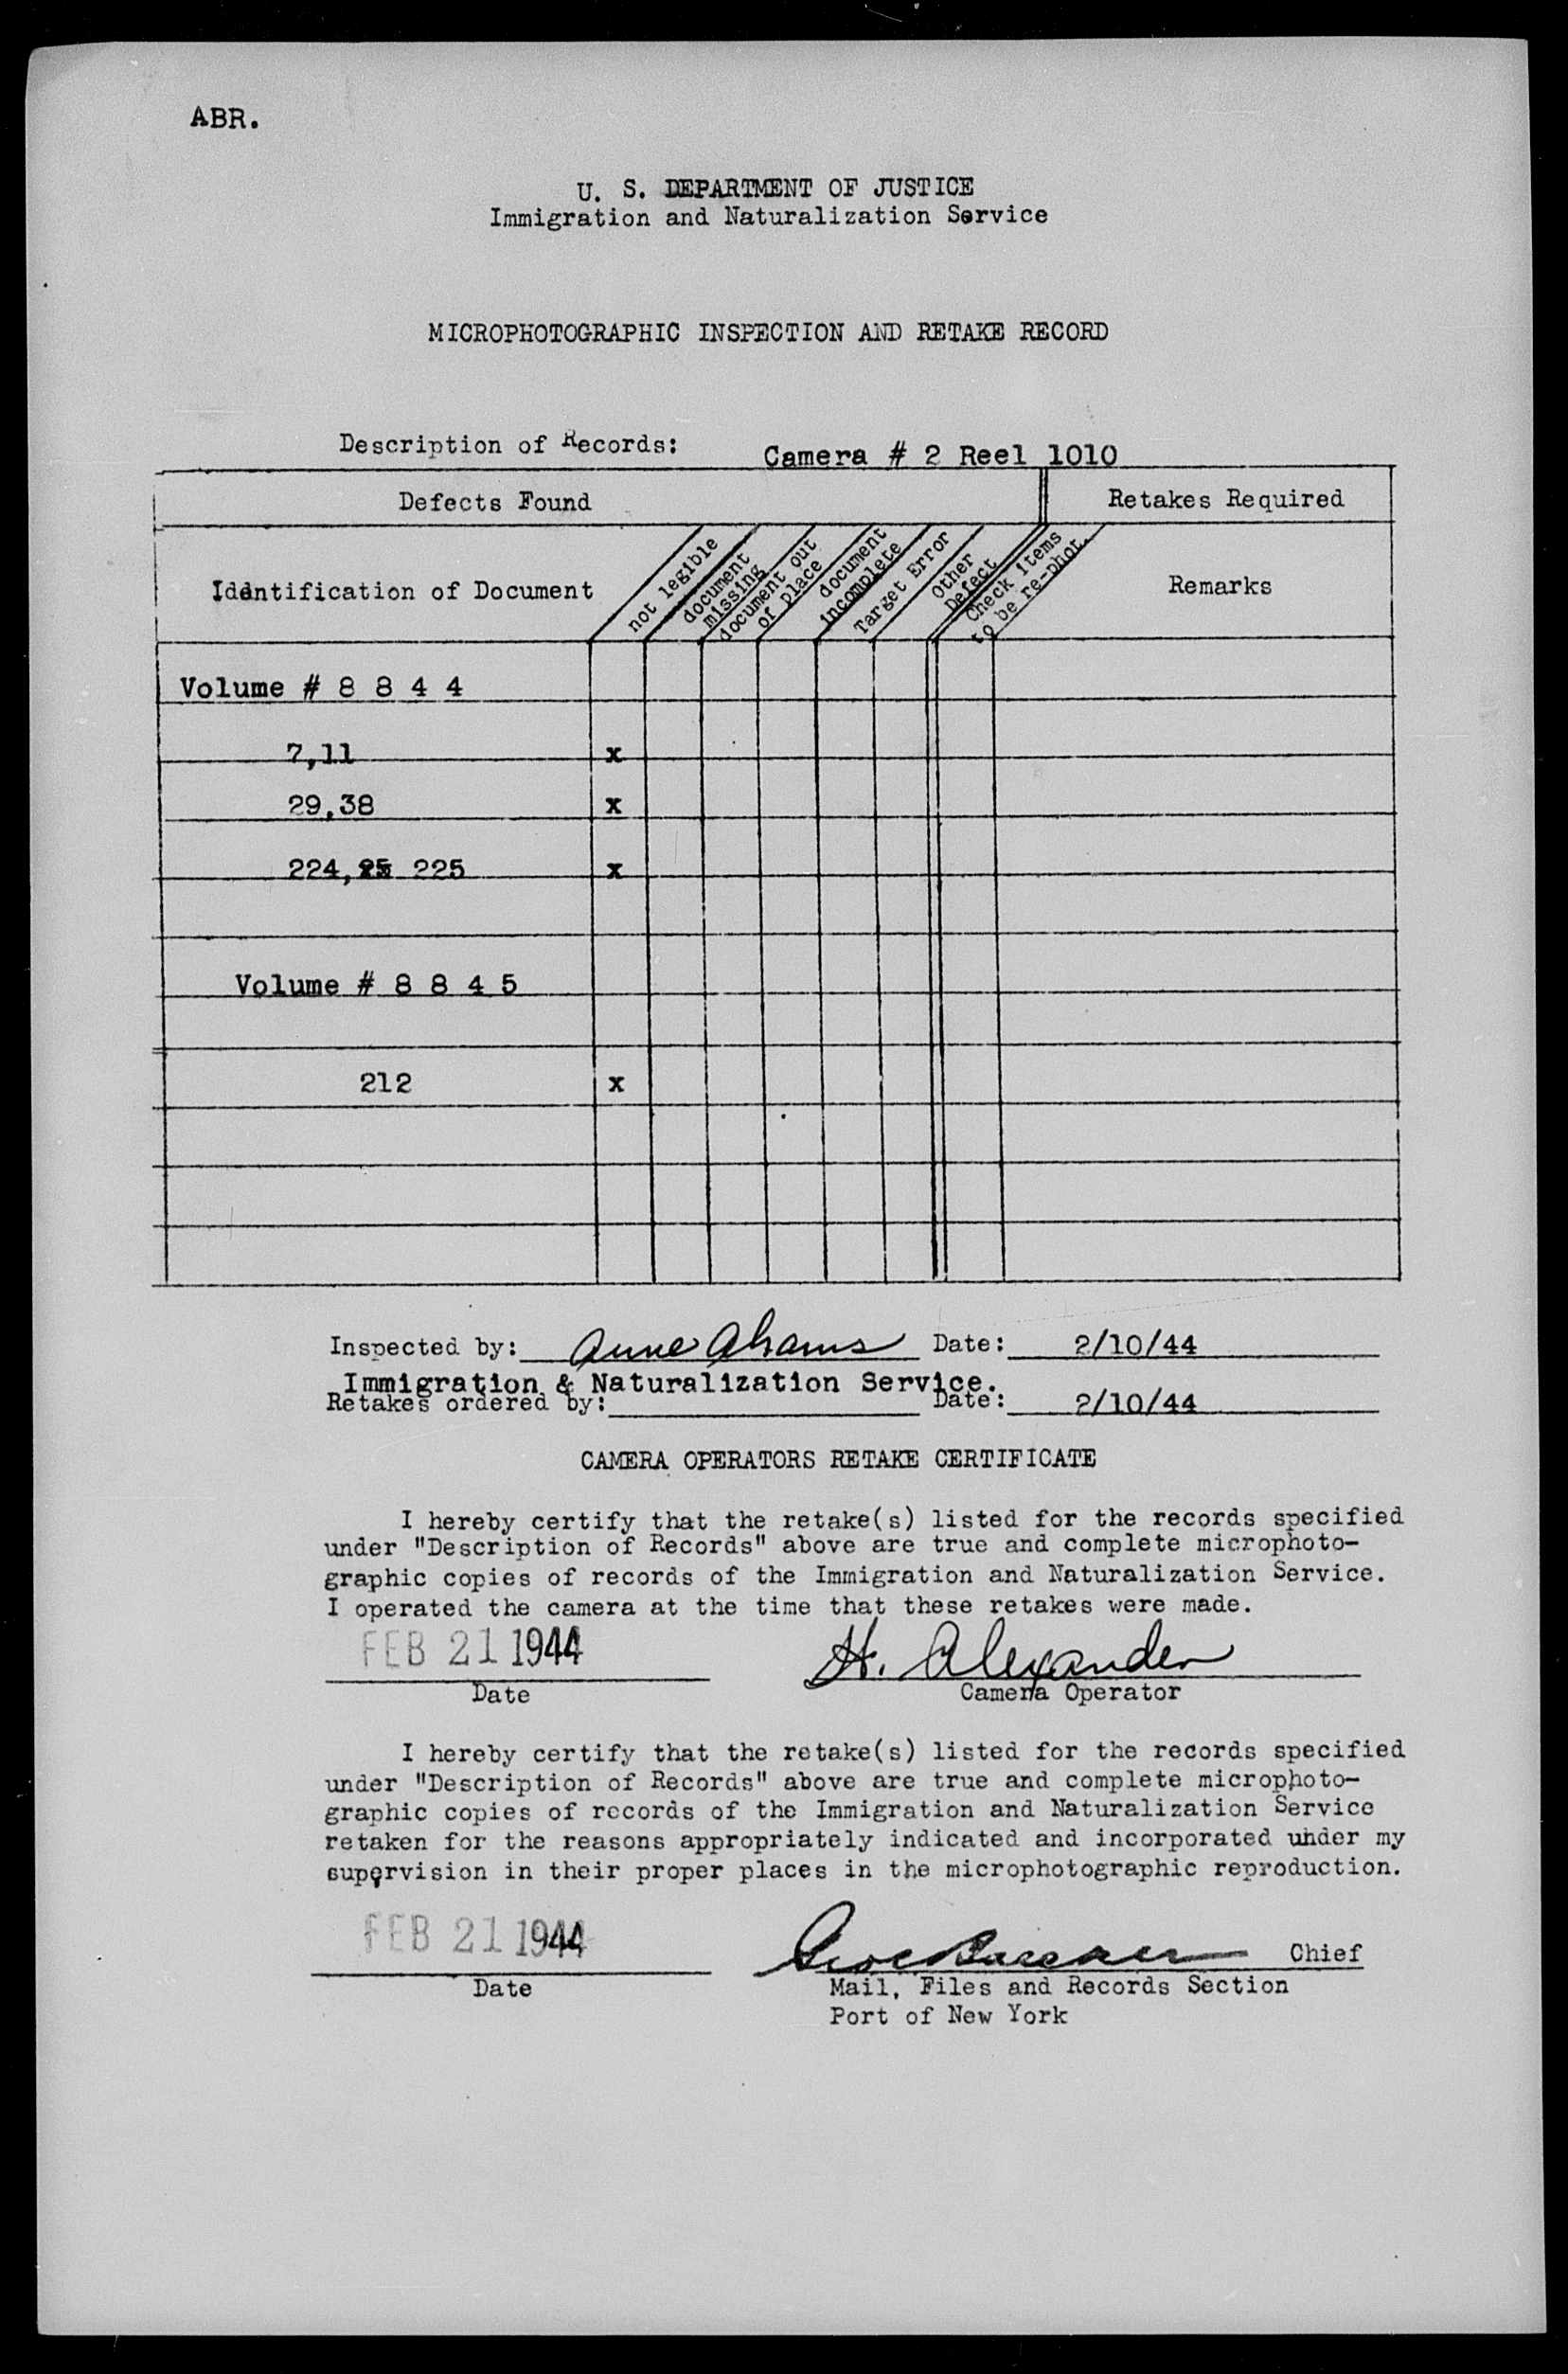 ABR.
U. S. DEPARTMENT OF JUSTICE
Immigration and Naturalization Service
MICROPHOTOGRAPHIC INSPECTION AND RETAKE RECORD
Description of Records: Camera # 2 Reel 1010
Defects Found Retakes Required
Identification of Document
not legible
document missing
document out of place
document incomplete
Target Error
Other Defect
Check items to be re-phot.
Remarks
Volume # 8 8 4 4
7,11 x
29,38 x
224, 225 x
Volume # 8 8 4 5
212 x
Inspected by: Anne Date: 2/10/44
Immigration & Naturalization Service.
Retakes ordered by: Date: 2/10/44
CAMERA OPERATORS RETAKE CERTIFICATE
I hereby certify that the retake(s) listed for the records specified
under "Description of Records" above are true and complete microphoto-
graphic copies of records of the Immigration and Naturalization Service.
I operated the camera at the time that these retakes were made.
FEB 21 1944 H. Alexander
Date Camera Operator
I hereby certify that the retake(s) listed for the records specified
under "Description of Records" above are true and complete microphoto-
graphic copies of records of the Immigration and Naturalization Service
retaken for the reasons appropriately indicated and incorporated under my
supervision in their proper places in the microphotographic reproduction.
FEB 21 1944 Chief
Date Mail, Files and Records Section
Port of New York